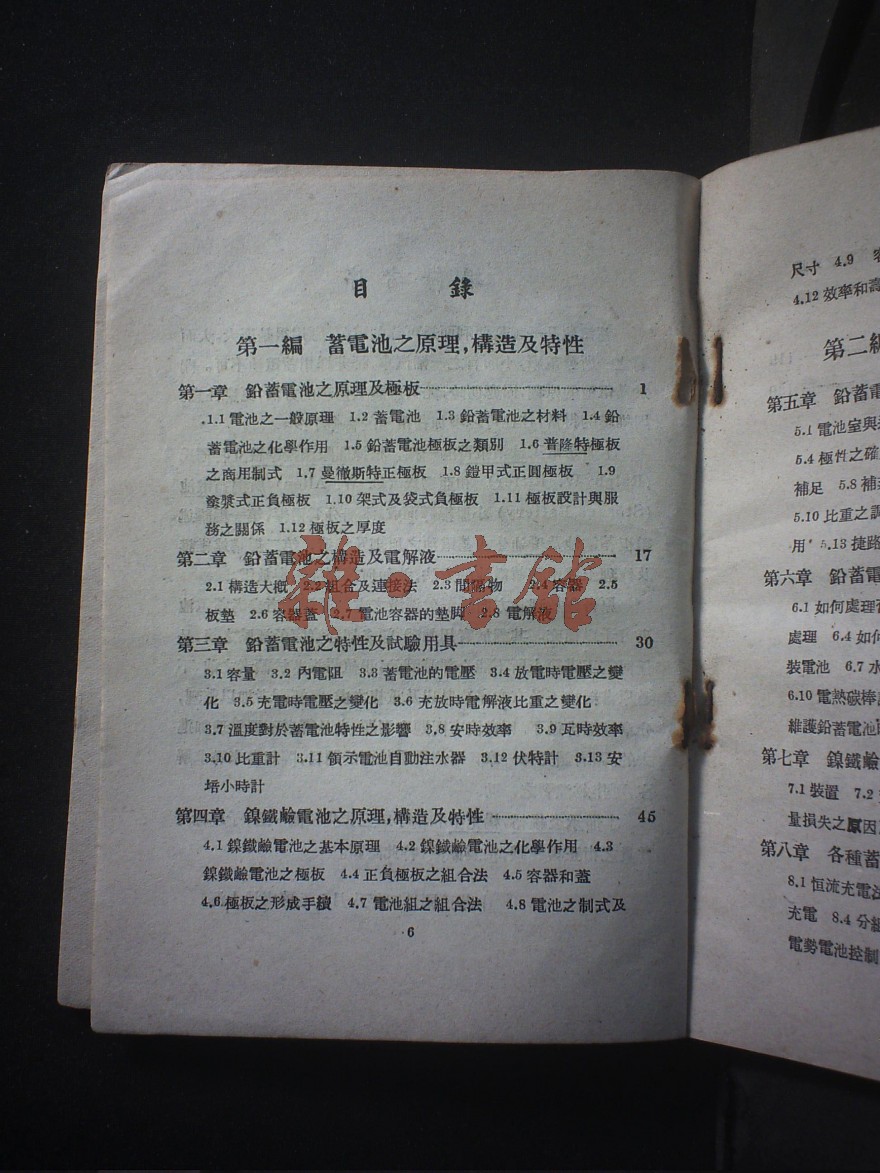 目 錄
第一編 蓄電池之原理,構造及特性
第一章 鉛蓄電池之原理及極板 1
1.1 電池之一般原理 1.2 蓄電池 1.3 鉛蓄電池之材料 1.4 鉛
蓄電池之化學作用 1.5 鉛蓄電池極板之類別 1.6 普隆特極板
之商用制式 1.7 曼徹斯特正極板 1.8 鎧甲式正圓極板 1.9
塗漿式正負極板 1.10 架式及袋式負極板 1.11 極板設計與服
務之關係 1.12 極板之厚度
第二章 鉛蓄電池之構造及電解液 17
2.1 構造大概 2.2 組合及連接法 2.3 間隔物 2.4 容器 2.5
板墊 2.6 容器蓋 2.7 電池容器的墊脚 2.8 電解液
第三章 鉛蓄電池之特性及試驗用具 30
3.1 容量 3.2 內電阻 3.3 蓄電池的電壓 3.4 放電時電壓之變
化 3.5 充電時電壓之變化 3.6 充放時電解液比重之變化
3.7 溫度對於蓄電池特性之影響 3.8 安時效率 3.9 瓦時效率
3.10 比重計 3.11 領示電池自動注水器 3.12 伏特計 3.13 安
培小時計
第四章 鎳鐵鹼電池之原理,構造及特性 45
4.1 鎳鐵鹼電池之基本原理 4.2 鎳鐵鹼電池之化學作用 4.3
鎳鐵鹼電池之極板 4.4 正負極板之組合法 4.5 容器和蓋
4.6 極板之形成手續 4.7 電池組之組合法 4.8 電池之制式及
6
雜·書館
尺寸 4.9
4.12 效率和
第二編
第五章 鉛蓄電
5.1 電池室與
5.4 極性之確
補足 5.8 補
5.10 比重之調
用 5.13 捷路
第六章 鉛蓄電
6.1 如何處理
處理 6.4 如何
裝電池 6.7 水
6.10 電熱碳棒
維護鉛蓄電池
第七章 鎳鐵鹼
7.1 裝置 7.2
量損失之原因
第八章 各種蓄
8.1 恒流充電法
充電 8.4 分組
電勢電池控制